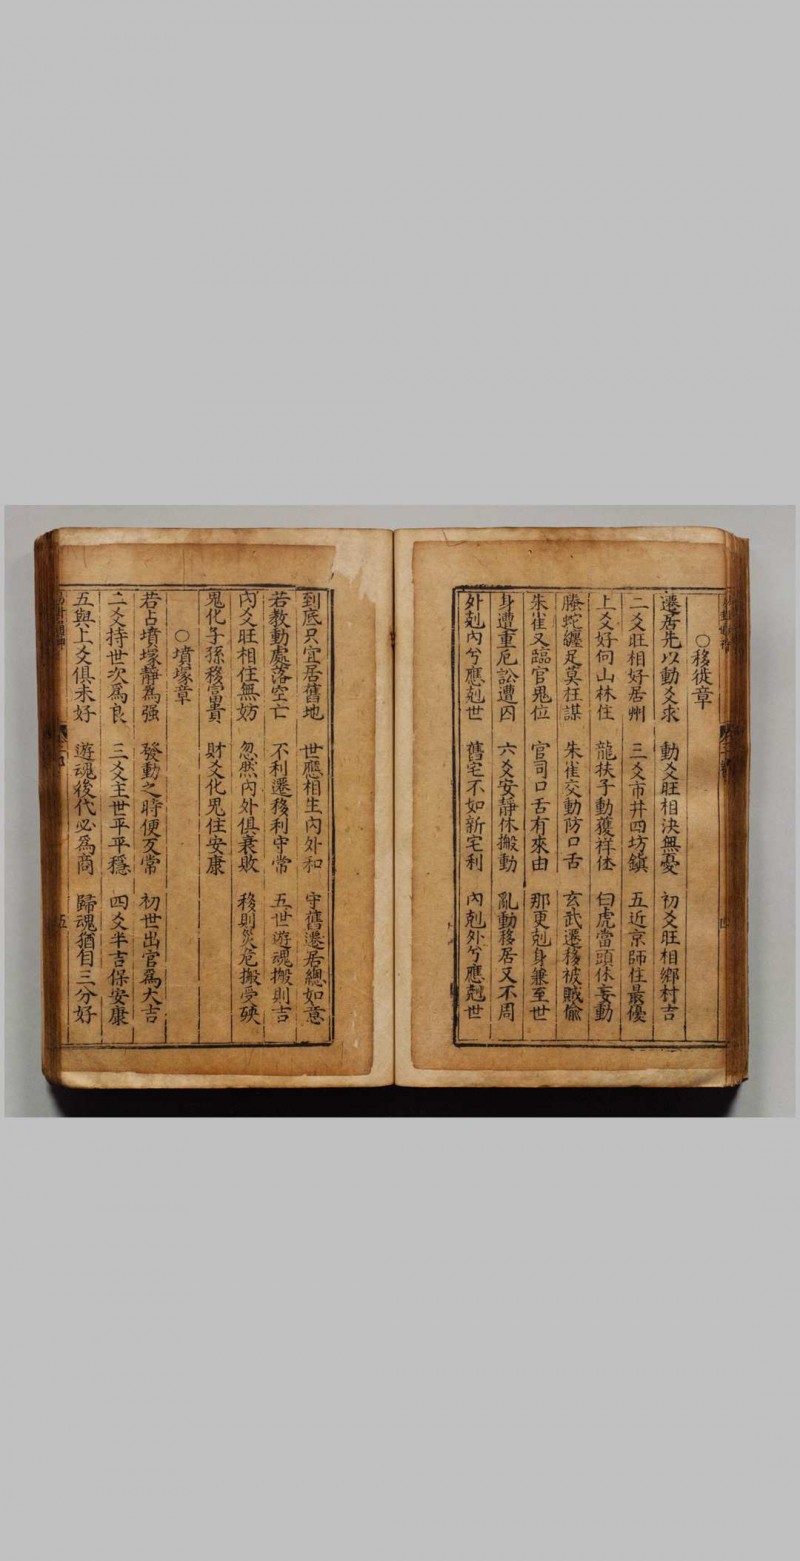 ○移徙章
遷居先以動爻求 動爻旺相決無憂 初爻旺相鄉村吉
二爻旺相好居州 三爻市井四坊鎮 五近京師住最優
上爻好向山林住 龍扶子動獲祥佳 白虎當頭休妄動
螣蛇纏足莫狂謀 朱雀交動防口舌 玄武遷移被賊偷
朱雀又臨官鬼位 官司口舌有來由 那更剋身兼至世
身遭重厄訟遭囚 六爻安靜休搬動 亂動移居又不周
外剋內兮應剋世 舊宅不如新宅利 內剋外兮應剋世
到底只宜居舊地 世應相生內外和 守舊遷居總如意
若教動處落空亡 不利遷移利守常 五世遊魂搬則吉
內爻旺相住無妨 忽然內外俱衰敗 移則災危搬受殃
鬼化子孫移富貴 財爻化鬼住安康
○墳塚章
若占墳塚靜為强 發動之時便反常 初世出官為大吉
二爻持世次為良 三爻主世平平穩 四爻半吉保安康
五與上爻俱未好 遊魂後代必為商 歸魂猶自三分好
五